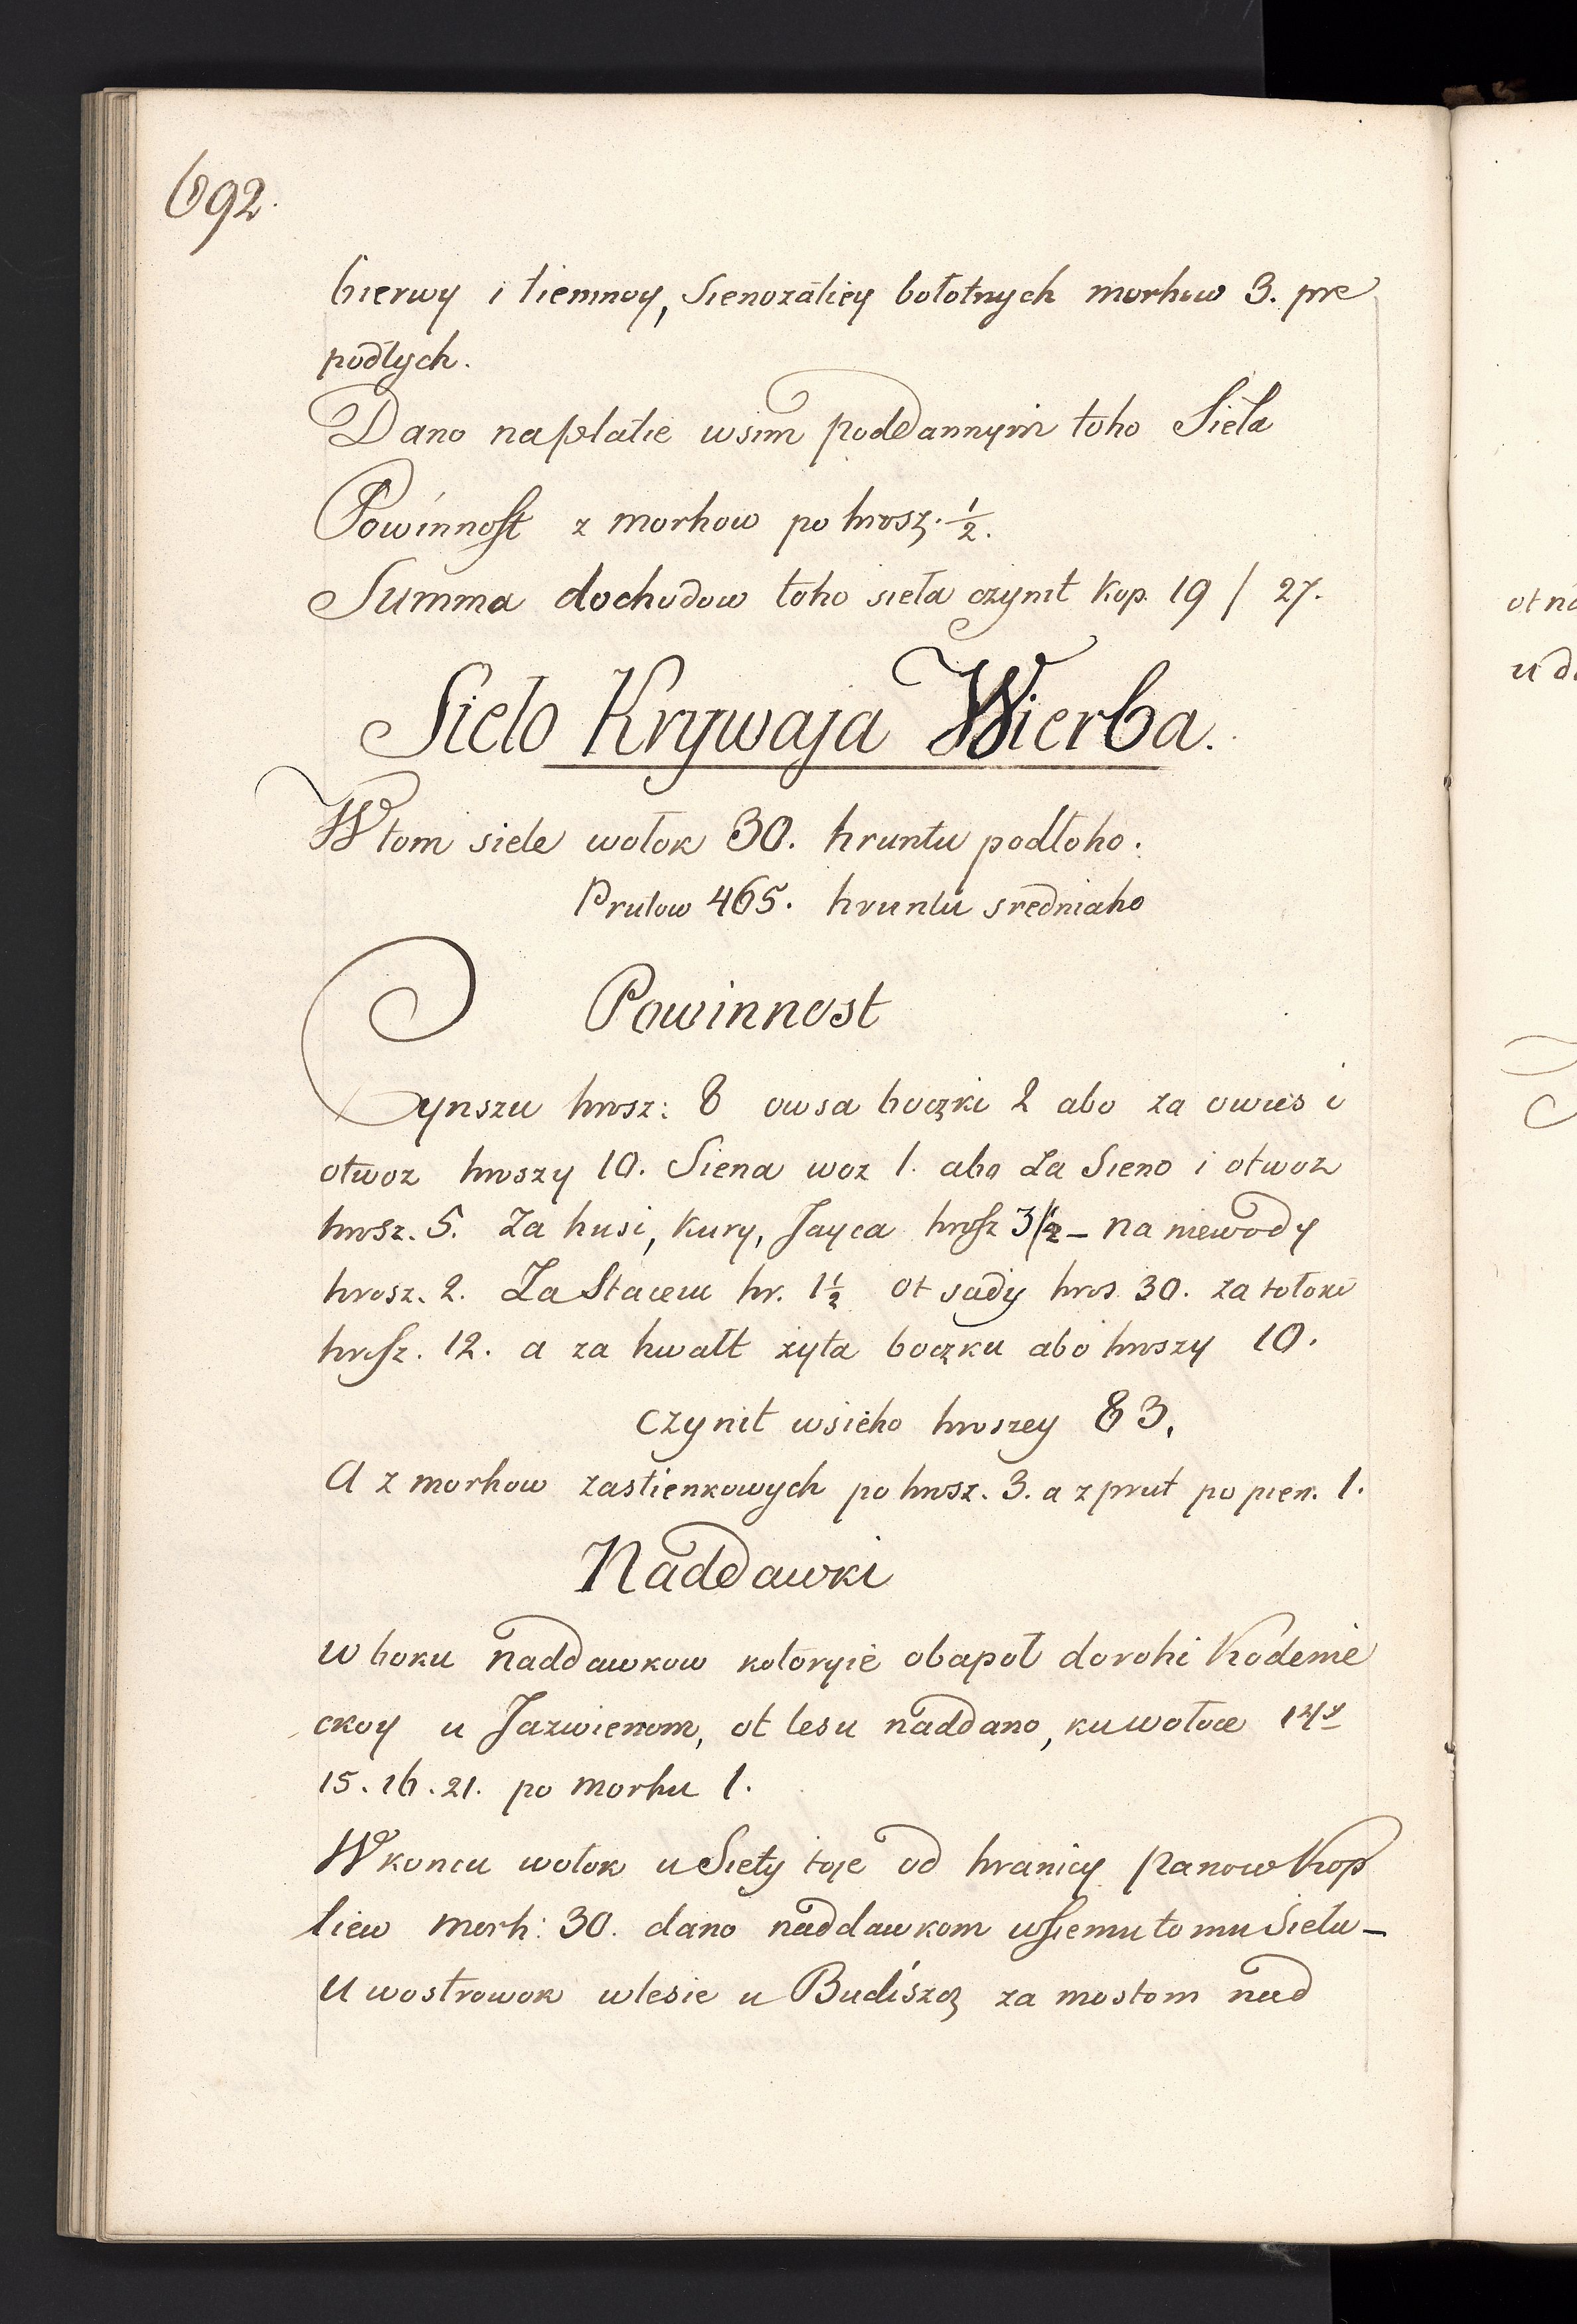 692.
bierwy i tiemnoy, Sienozatiey bołotnych morhow 3. pre
podłych.
Dano na płatie wsim poddannym toho Sieła
Powinnost z morhow po hrosz. 1/2.
Summa dochodow toho sieła czynit Kop. 19 / 27.
Sieło Krywaja Wierba.
W tom siele wołok 30. hruntu podłoho.
Prutow 465. hruntu sredniaho
Powinnost
Cynszu hrosz: 8 owsa boczki 2 abo za owies i
otwoz hroszy 10. Siena woz 1. abo za Sieno i otwoz
hrosz. 5. Za husi, Kury, Jayca hrosz 3 1/2 – na niewody
hrosz. 2. Za Staceiu hr. 1 1/2 ot sady hros. 30. za tołoki
hrosz. 12. a za hwałt żyta boczku abo hroszy 10.
czynit wsieho hroszey 83.
A z morhow zastienkowych po hrosz. 3. a z prut po pien. 1.
Naddawki
w boku naddawkow kotoryie obapoł dorohi Kodenie
ckoy u Jazwienom, ot lesu naddano, ku wołoce 14y
15. 16. 21. po morhu 1.
W koncu wołok u Sieły toje od hranicy Panow Kop
tiew morh: 30. dano naddawkom wsiemu tomu Siełu –
U wostrowok w lesie u Budiszcz za mostom nad
ot na
u d